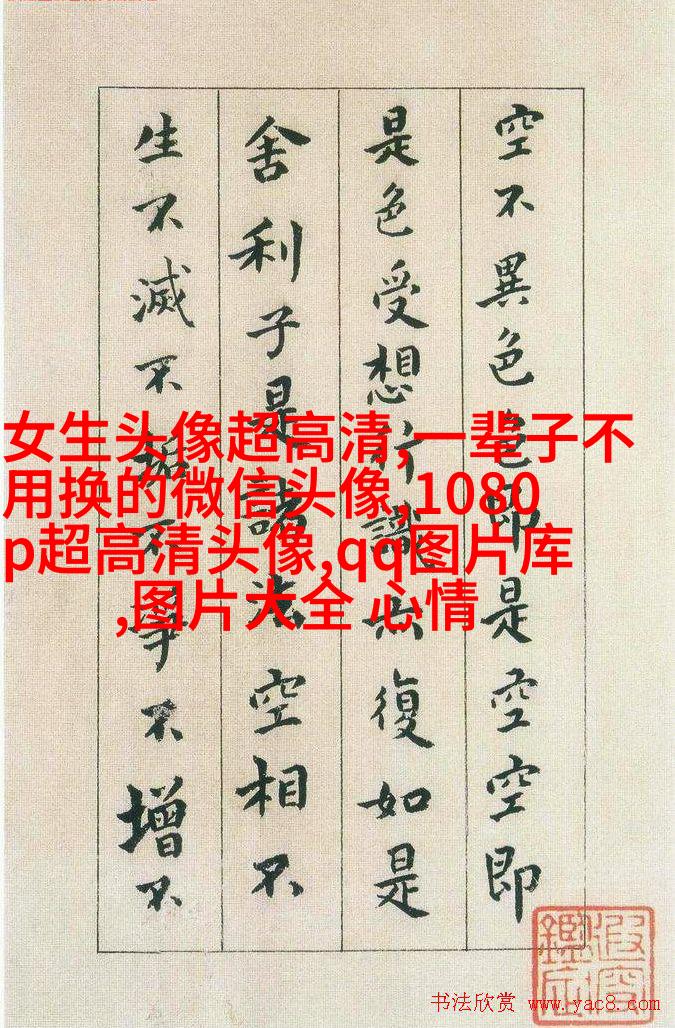 空不異色色即是空空即
是色受想行識亦復如是
舍利子是諸法空相不
生不滅不垢不淨不增不
女生头像超高清,一辈子不
用换的微信头像,1080
p超高清头像,qq图片库
,图片大全 心情
书法欣赏 www.yac8.com